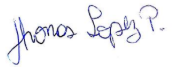 Jhonas Lopez P.